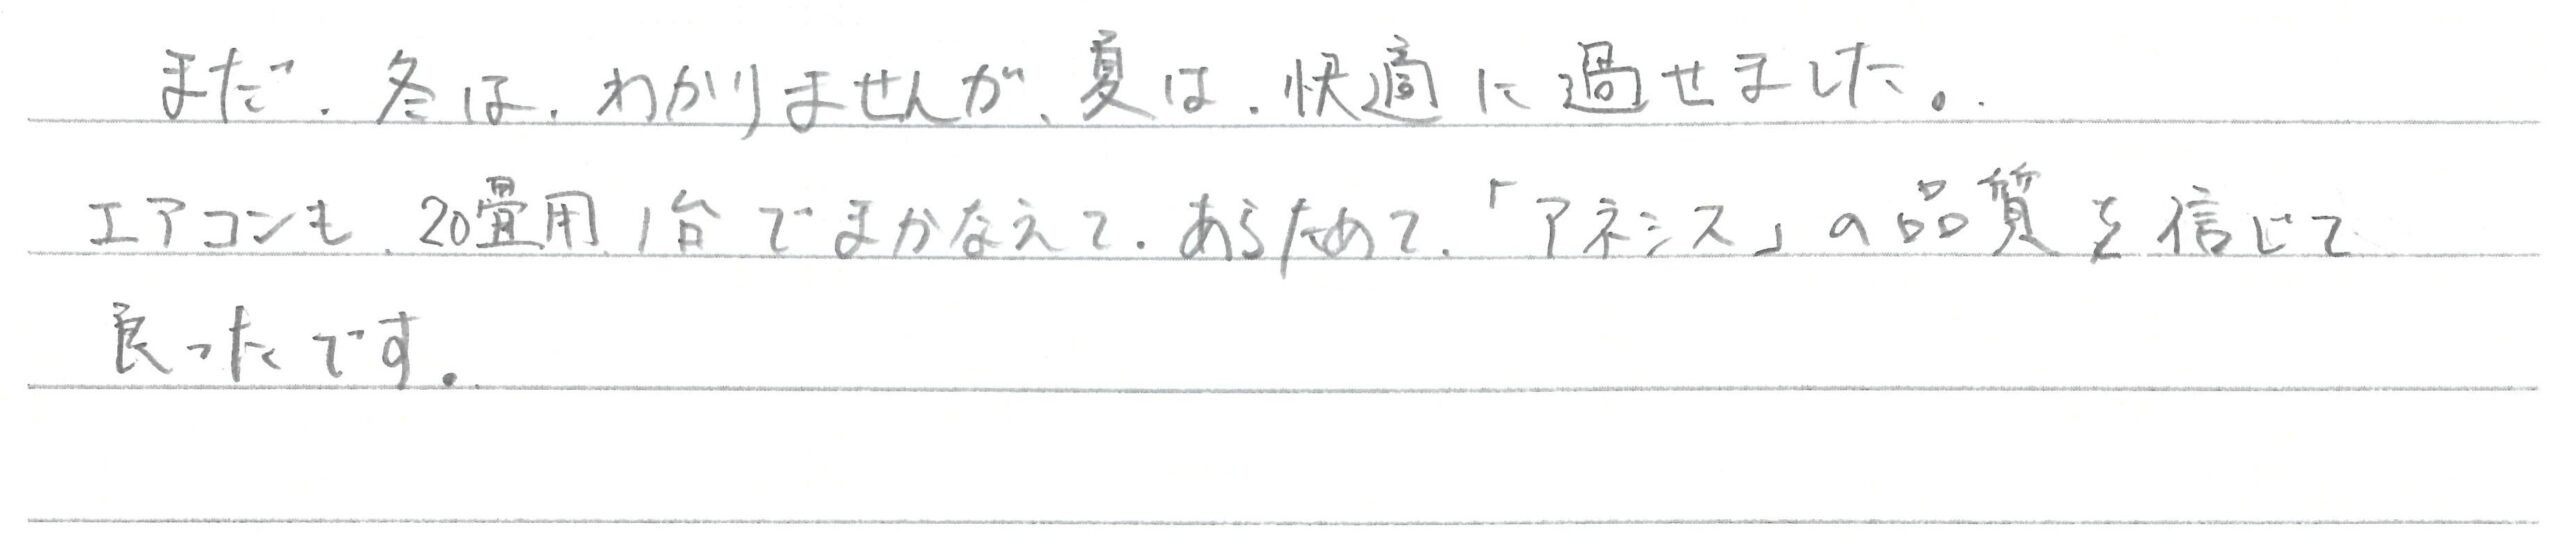 まだ、冬は、わかりませんが、夏は、快適に過せました。
エアコンも、20畳用1台でまかなえて、あらためて、「アネシス」の品質を信じて
良ったです。